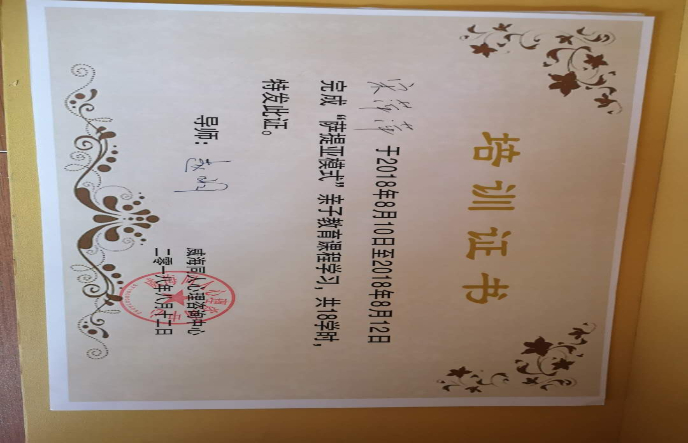 培训证书
宋萍萍 于2018年8月10日至2018年8月12日
完成“萨提亚模式”亲子教育课程学习，共18学时，
特发此证。
导师：
威海同人心理咨询中心
二零一八年八月十二日